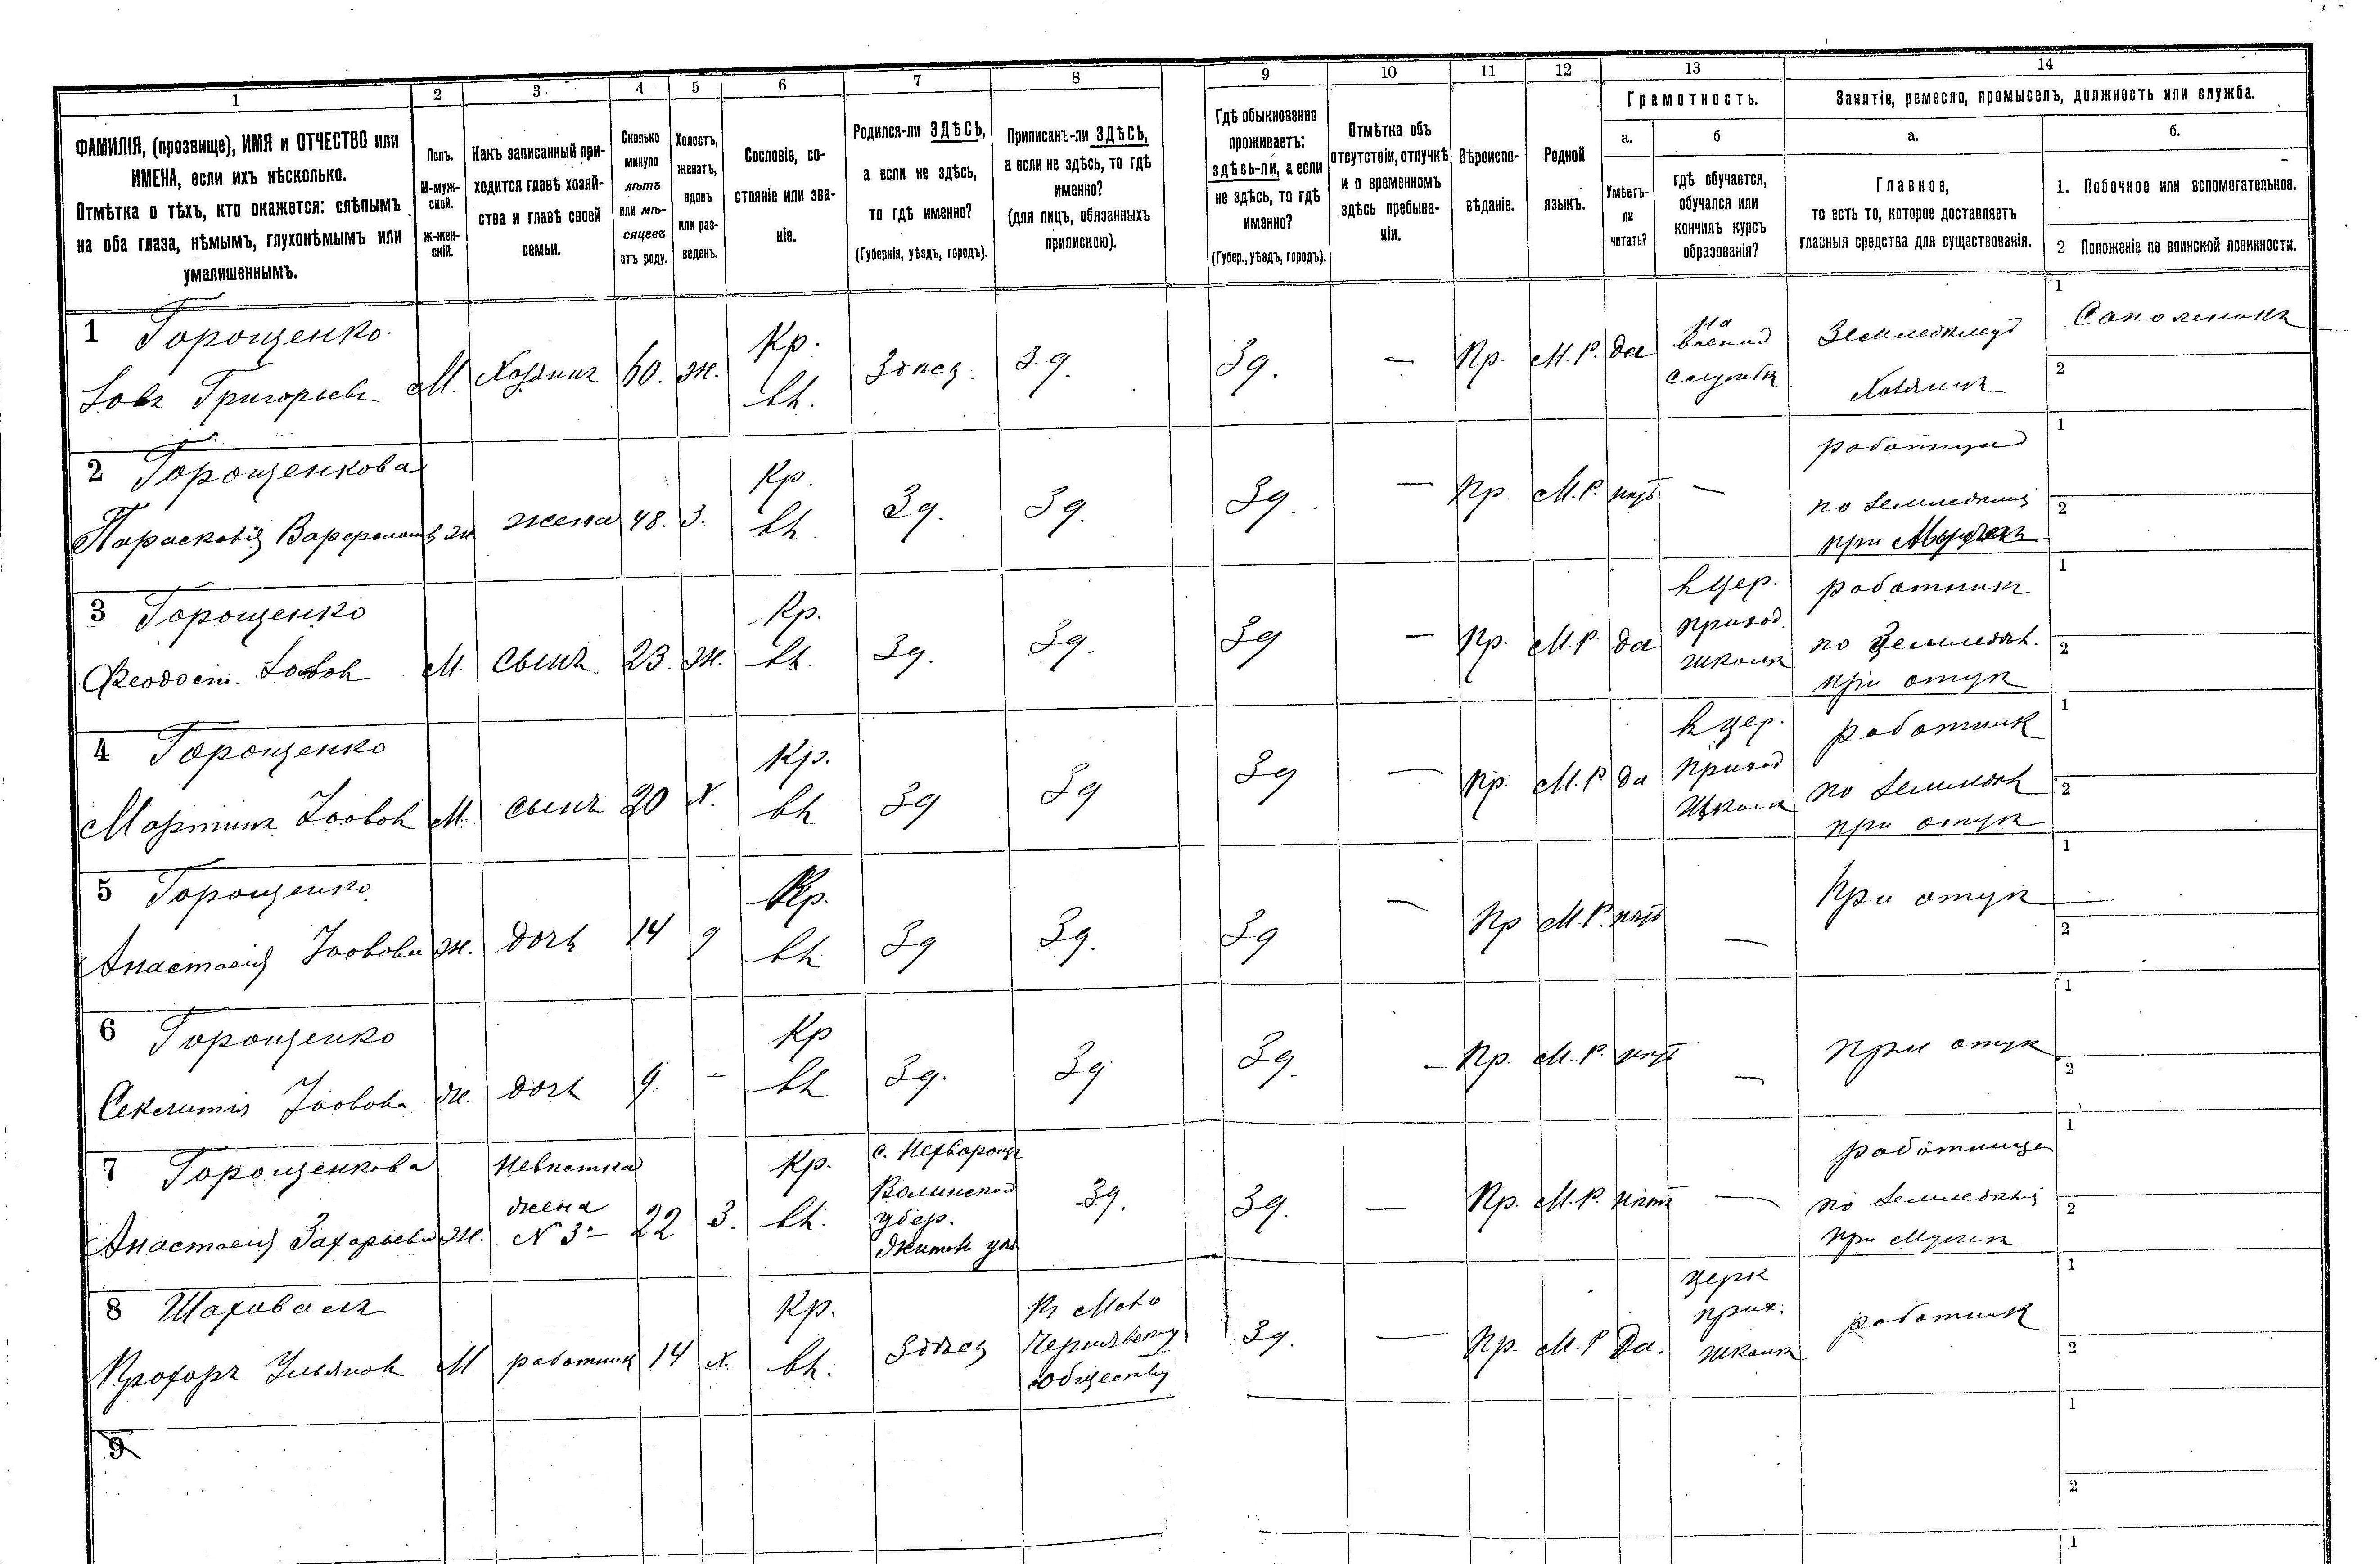 1 2 3 4 5 6 7 8 9 10 11 12 13 14
ФАМИЛІЯ, (прозвище), ИМЯ и ОТЧЕСТВО или
ИМЕНА, если ихъ нѣсколько.
Отмѣтка о тѣхъ, кто окажется: слѣпымъ
на оба глаза, нѣмымъ, глухонѣмымъ или
умалишеннымъ.
Полъ.
М-муж-
ской.
Ж-жен-
скій.
Какъ записанный при-
ходится главѣ хозяй-
ства и главѣ своей
семьи.
Сколько
минуло
лѣтъ
или мѣ-
сяцевъ
отъ роду.
Холостъ,
женатъ,
вдовъ
или раз-
веденъ.
Сословіе, со-
стояніе или зва-
ніе.
Родился-ли ЗДѢСЬ,
а если не здѣсь,
то гдѣ именно?
(Губернія, уѣздъ, городъ).
Приписанъ-ли ЗДѢСЬ,
а если не здѣсь, то гдѣ
именно?
(для лицъ, обязанныхъ
припискою).
Гдѣ обыкновенно
проживаетъ:
здѣсь-ли, а если
не здѣсь, то гдѣ
именно?
(Губер., уѣздъ, городъ).
Отмѣтка объ
отсутствіи, отлучкѣ
и о временномъ
здѣсь пребыва-
ніи.
Вѣроиспо-
вѣданіе.
Родной
языкъ.
Грамотность.
а.
Умѣетъ-
ли
читать?
б
гдѣ обучается,
обучался или
кончилъ курсъ
образованія?
Занятіе, ремесло, промыселъ, должность или служба.
а.
Главное,
то есть то, которое доставляетъ
главныя средства для существованія.
б.
1. Побочное или вспомогательное.
2 Положеніе по воинской повинности.
1 Горощенко
Іовъ Григорьевъ
М.
Хозяинъ
60.
ж.
Кр.
вл.
Здѣсь.
Зд.
Зд.
—
Пр.
М.Р.
да
на
военной
службѣ
Земледѣлецъ
Хозяинъ
1
Сапожникъ
2
2 Горощенкова
Парасковія
ж
жена
48.
З.
Кр.
вл.
Зд.
Зд.
Зд.
—
Пр.
М.Р.
нѣтъ
—
работница
по земледѣлію
при
1
2
3 Горощенко
Феодосій Іововъ
М.
сынъ
23.
ж.
Кр.
вл.
Зд.
Зд.
Зд
—
Пр.
М.Р.
да
в цер.
приход.
школѣ
работникъ
по земледѣл.
при отцѣ
1
2
4 Горощенко
Мартинъ Іововъ
М.
сынъ
20
х.
Кр.
вл
Зд
Зд
Зд
—
Пр.
М.Р
да
в цер.
приход
школѣ
работник
по земледѣл
при отцѣ
1
2
5 Горощенко
Анастасія Іовова
ж.
дочь
14
д
Кр.
вл
Зд
Зд.
Зд
—
Пр
М.Р.
нѣтъ
—
При отцѣ
1
2
6 Горощенко
Іовова
ж.
дочь
9.
—
Кр
вл
Зд.
Зд
Зд.
—
Пр.
М.Р.
нѣтъ
—
при отцѣ
1
2
7 Горощенкова
Анастасія Захарьева
ж.
Невѣстка
жена
№ 3
22
З.
Кр.
вл.
Волинской
губер.
Житом уѣз
Зд.
Зд.
—
Пр.
М.Р.
нѣтъ
—
работница
по земледѣлію
при мужѣ
1
2
8 Шаховалъ
Прохоръ Ульянов
М
работник
14
х.
Кр.
вл.
Здѣсь
обществу
Зд.
—
Пр.
М.Р
Да.
церк
прих.
школѣ
работник
1
2
9
1
2
1